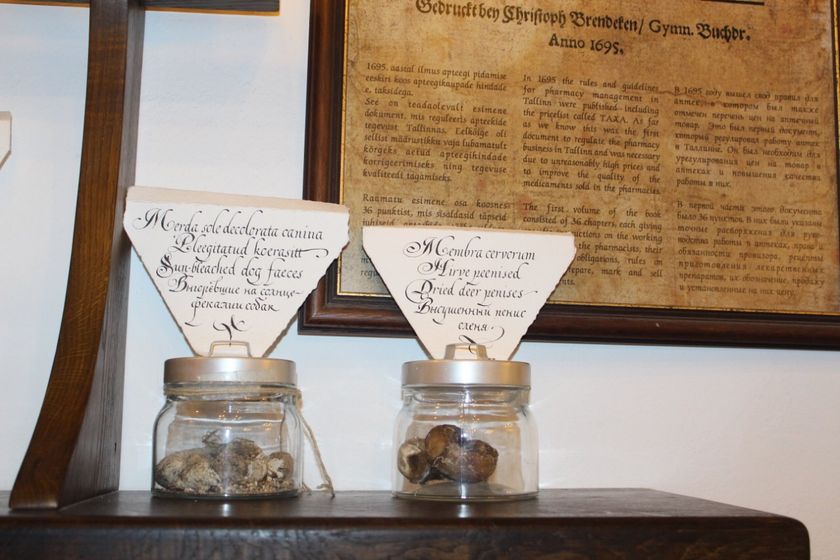 Gedruckt bey Christoph Brendeken/ Gymn. Buchdr.
Anno 1695.
1695. aastal ilmus apteegi pidamise
eeskiri koos apteegikaupade hindade
e. taksidega.
See on teadaolevalt esimene
dokument, mis reguleeris apteekide
tegevust Tallinnas. Eelkõige oli
sellist määrustikku vaja lubamatult
kõrgeks aetud apteegihindade
korrigeerimiseks ning tegevuse
kvaliteedi tagamiseks.
Raamatu esimene, osa koosnes
36 punktist, mis sisaldasid täpseid
In 1695 the rules and guidelines
for pharmacy management in
Tallinn were published including
the pricelist called TAXA. As far
as we know this was the first
document to regulate the pharmacy
business in Tallinn and was necessary
due to unreasonably high prices and
to improve the quality of the
medicaments sold in the pharmacies
The first volume of the book
consisted of 36 chapters, each giving
ctions on the working
pharmacists, their
obligations, rules on
epare, mark and sell
ents.
В 1695 году вышел свод правил для
аптек, в котором был также
отмечен перечень цен на аптечный
товар. Это был первый документ,
который регулировал работу аптек
в Таллинне. Он был необходим для
урегулирования цен на товар в
аптеках и повышения качества
работы в них.
В первой части этого документа
было 36 пунктов. В них были указаны
точные распоряжения для
работы в аптеках, права и
обязанности провизора, рецепты
приготовления лекарственных
препаратов, их обозначение, продажу
и установленные на них цену.
Merda sole decolorata canina
Pleegitatud koerasitt
Sun-bleached dog faeces
Выгревшие на солнце
фекалии собак
Membra cervorum
Hirve peenised
Dried deer penises
Высушенный пенис
оленя